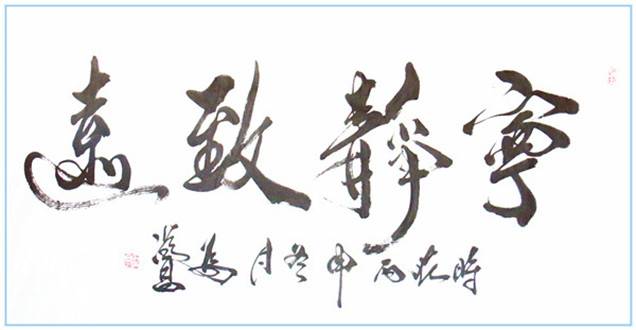 寧靜致遠
時在丙申冬月